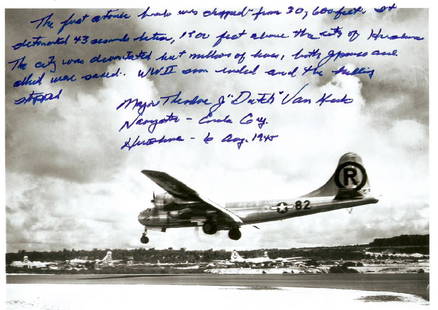 The first atomic bomb was dropped from 30,600 feet. It
detonated 43 seconds later, 1890 feet above the city of Hiroshima
The city was devastated but millions of lives, both Japanese and
allied were saved. WWII soon ended and the killing
stopped
Major Theodore J "Dutch" Van Kirk
Navigator - Enola Gay
Hiroshima - 6 Aug. 1945
R
82